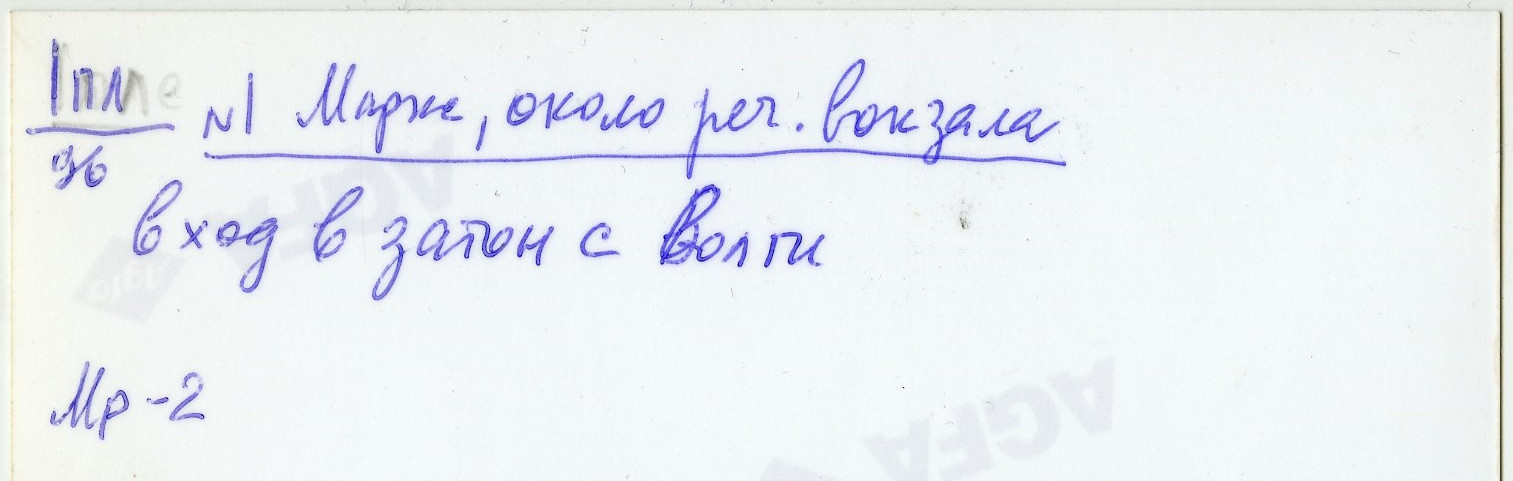 1пл №1 Маркс, около реч. вокзала
96
вход в затон с Волги
Мр-2
AGFA
Agfa
AGFA